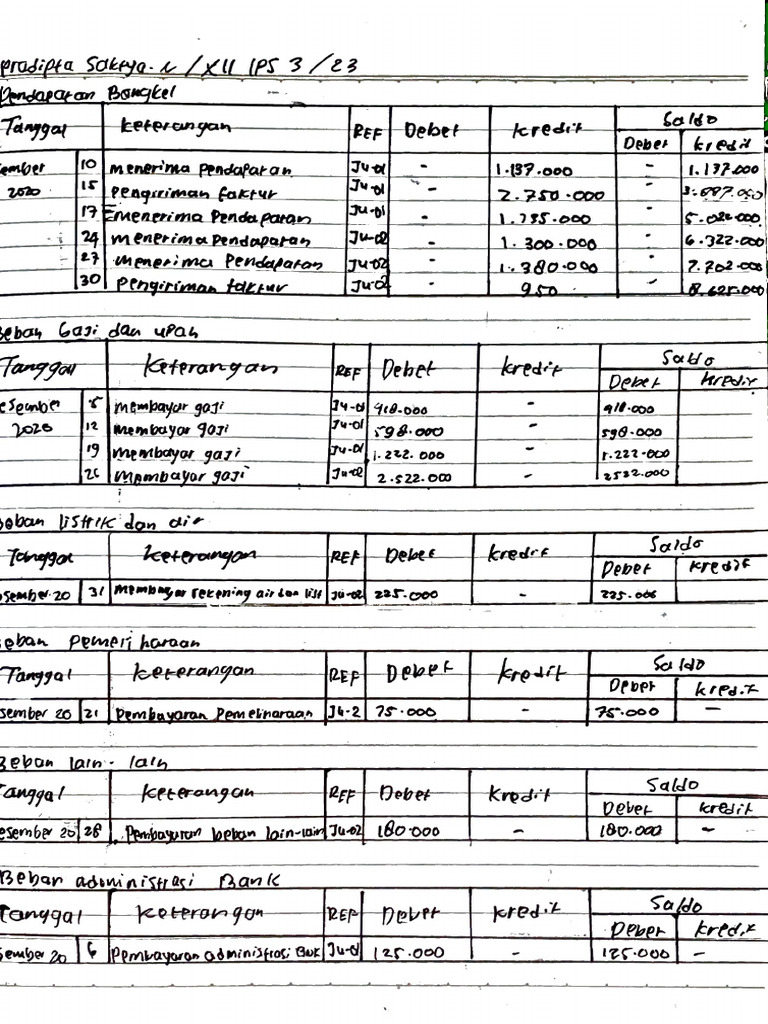 pradipta Saktya. N / XII IPS 3 / 23
Pendapatan Bengkel
Tanggal Keterangan REF Debet Kredit Saldo
Debet Kredit
ember 10 menerima Pendapatan Ju-01 - 1.137.000 - 1.137.000
2020 15 Pengiriman faktur Ju-01 - 2.750.000 -
17 menerima Pendapatan Ju-01 - 1.135.000 - 5.022.000
24 menerima Pendapatan Ju-02 - 1.300.000 - 6.322.000
27 menerima Pendapatan Ju-02 - 1.380.000 - 7.702.000
30 pengiriman faktur Ju-02 - 950 - 8.625.000
Beban Gaji dan upah
Tanggal Keterangan REF Debet Kredit Saldo
Debet Kredit
esember 5 membayar gaji Ju-01 918.000 - 918.000
2020 12 membayar gaji Ju-01 598.000 - 598.000
19 membayar gaji Ju-01 1.222.000 - 1.222.000
26 membayar gaji Ju-02 2.522.000 - 2522.000
Beban listrik dan air
Tanggal Keterangan REF Debet Kredit Saldo
Debet Kredit
esember 20 31 membayar rekening air dan list Ju-02 225.000 - 225.000
eban Pemeriharaan
Tanggal Keterangan REF Debet Kredit Saldo
Debet Kredit
sember 20 21 Pembayaran Pemeliharaan Ju-2 75.000 - 75.000 -
Beban lain-lain
Tanggal Keterangan REF Debet Kredit Saldo
Debet Kredit
esember 20 28 Pembayaran beban lain-lain Ju-02 180.000 - 180.000 -
Beban administrasi Bank
Tanggal Keterangan REF Debet Kredit Saldo
Debet Kredit
sember 20 6 Pembayaran administrasi Ju-01 125.000 - 125.000 -